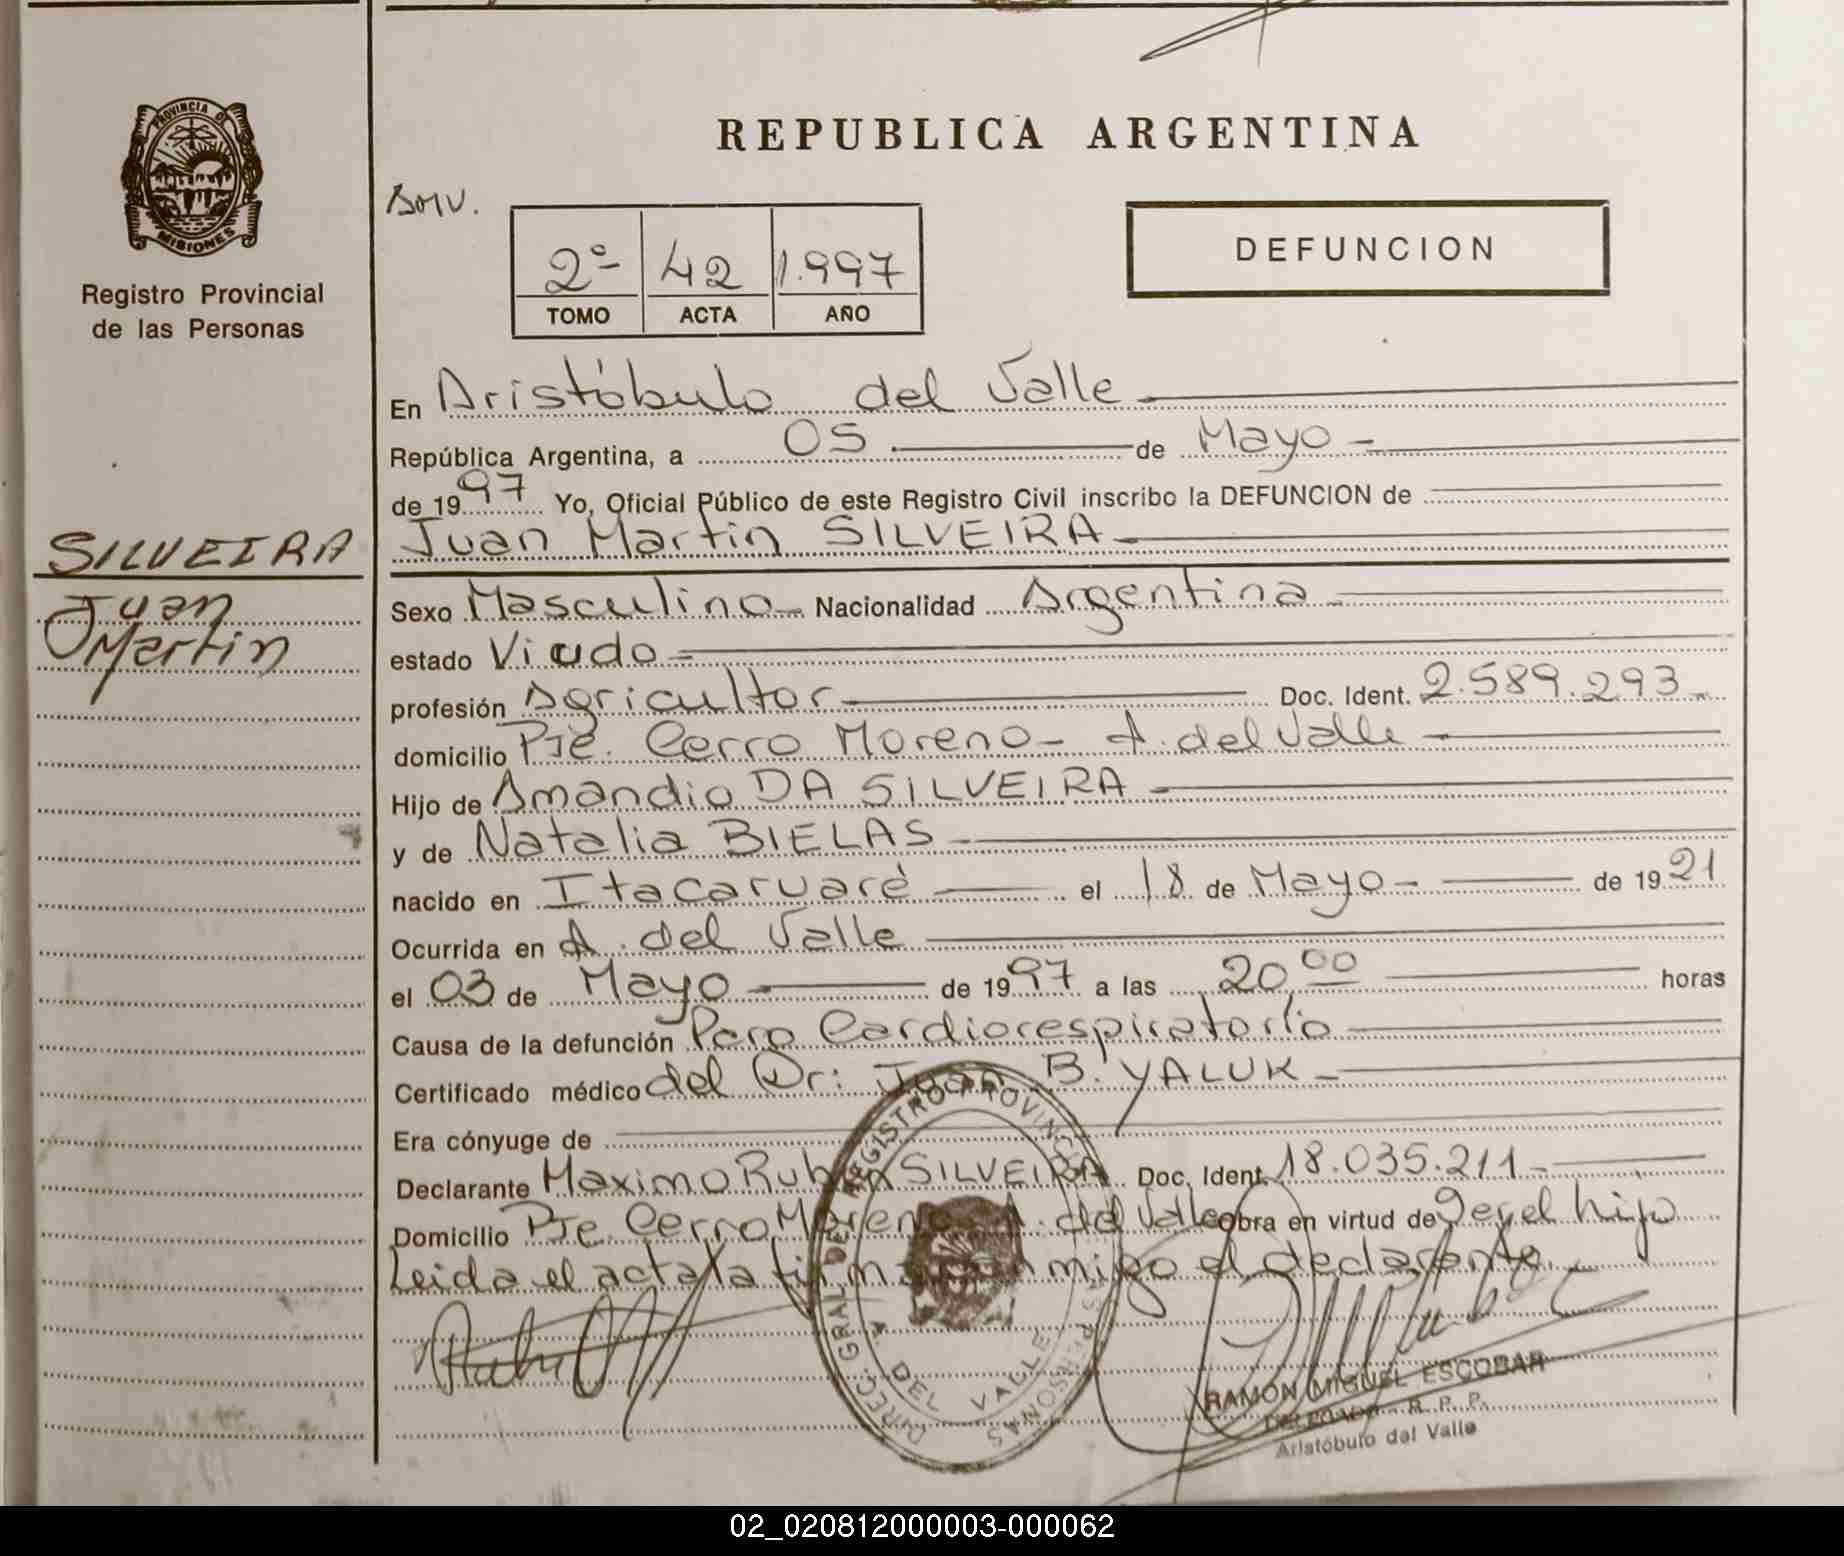 PROVINCIA DE
MISIONES
Registro Provincial
de las Personas
SILVEIRA
Juan
Martin
REPUBLICA ARGENTINA
2º 42 1.997
TOMO ACTA AÑO
DEFUNCION
En Aristóbulo del Valle
República Argentina, a 05 de Mayo
de 1997 Yo, Oficial Público de este Registro Civil inscribo la DEFUNCION de
Juan Martin SILVEIRA
Sexo Masculino Nacionalidad Argentina
estado Viudo
profesión Agricultor Doc. Ident. 2.589.293
domicilio Pje. Cerro Moreno - A. del Valle
Hijo de Amandio DA SILVEIRA
y de Natalia BIELAS
nacido en Itacaruaré el 18 de Mayo de 1921
Ocurrida en A. del Valle
el 03 de Mayo de 1997 a las 20,00 horas
Causa de la defunción Paro Cardiorespiratorio
Certificado médico del Dr: Juan B. YALUK
Era cónyuge de
Declarante Maximo Ruben SILVEIRA Doc. Ident. 18.035.211
Domicilio Pje. Cerro Moreno - A. del Valle obra en virtud de ser el hijo
Leida el acta la firma conmigo el declarante.
DIREC. GRAL DEL REGISTRO PROVINCIAL DE LAS PERSONAS
A. DEL VALLE
RAMON MIGUEL ESCOBAR
DELEGADO R. P. P.
Aristóbulo del Valle
02_020812000003-000062